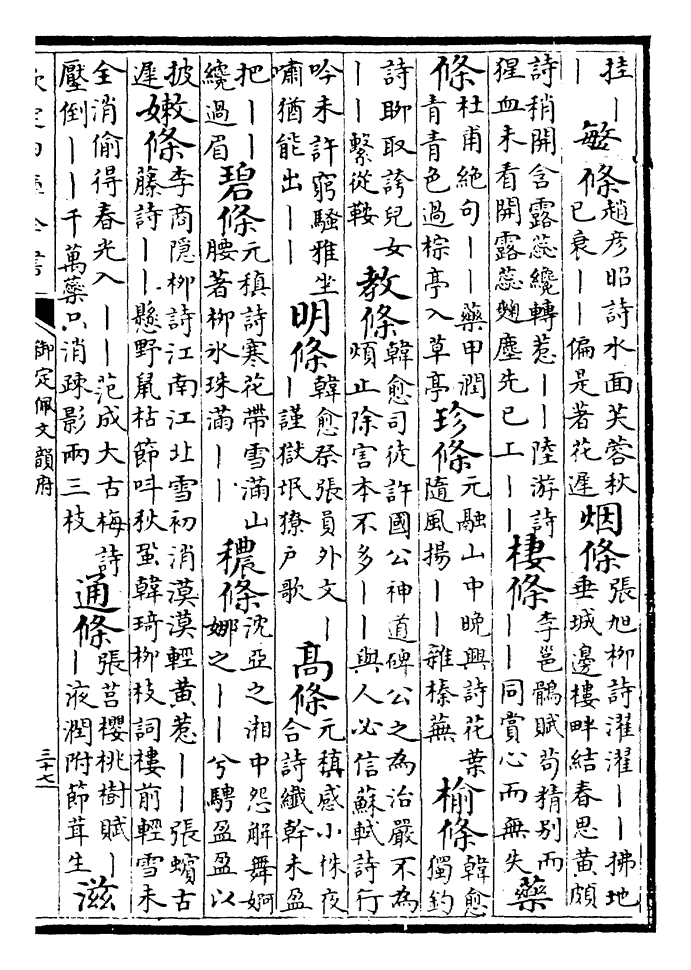 挂丨丨繁條趙彦昭詩水面芙蓉秋已衰丨丨偏是著花遲烟條張旭柳詩濯濯丨丨拂地垂城邊樓畔結春思黄頗
詩稍開含露蕊纔轉惹丨丨陸游詩猩血未看開露蕊麹塵先已工丨丨棲條李邕鶻賦茍猜别而丨丨同賞心而無失藥
條杜甫絶句丨丨藥甲潤青青色過椶亭入草亭珍條元融山中晚興詩花葉隨風揚丨丨雜榛蕪榆條韓愈獨釣
詩聊取誇兒女丨丨繫從鞍教條韓愈司徒許國公神道碑公之為治嚴不為煩止除害本不多丨丨與人必信蘇軾詩行
吟未許窮騷雅坐嘯猶能出丨丨明條韓愈祭張員外文丨丨謹獄氓獠户歌髙條元稹感小株夜合詩纖幹未盈
把丨丨繞過眉碧條元稹詩寒花帶雪滿山腰著柳氷珠滿丨丨穠條沈亞之湘中怨解舞婀娜之丨丨兮騁盈盈以
披遲嫩條李商隠柳詩江南江北雪初消漠漠輕黄惹丨丨張蠙古藤詩丨丨懸野鼠枯節叫秋蛩韓琦柳枝詞樓前輕雪未
全消偷得春光入丨丨范成大古梅詩壓倒丨丨千萬蘂只消疎影兩三枝通條張莒櫻桃樹賦丨丨液潤附節茸生滋
欽定四庫全書
御定佩文韻府
三十七